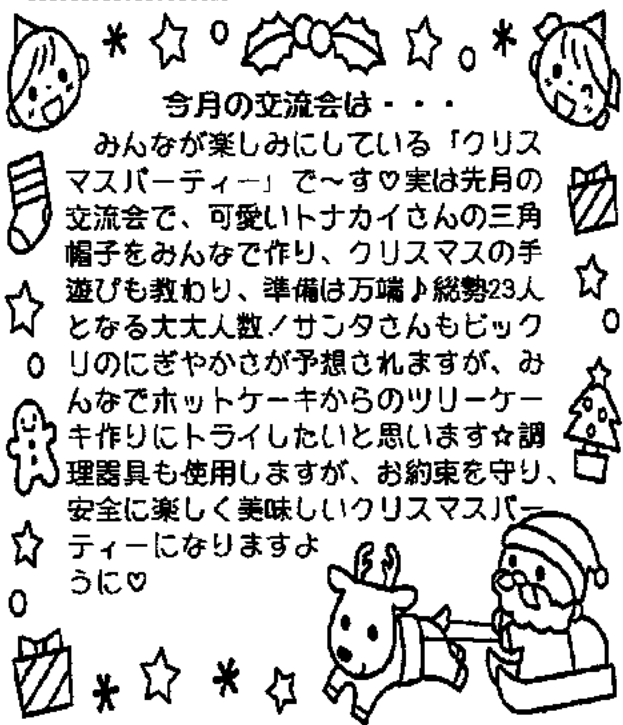 今月の交流会は・・・
みんなが楽しみにしている「クリス
マスパーティー」で～す♡実は先月の
交流会で、可愛いトナカイさんの三角
帽子をみんなで作り、クリスマスの手
遊びも教わり、準備は万端♪総勢23人
となる大大人数！サンタさんもビック
リのにぎやかさが予想されますが、み
んなでホットケーキからのツリーケー
キ作りにトライしたいと思います☆調
理器具も使用しますが、お約束を守り、
安全に楽しく美味しいクリスマスパー
ティーになりますよ
うに♡